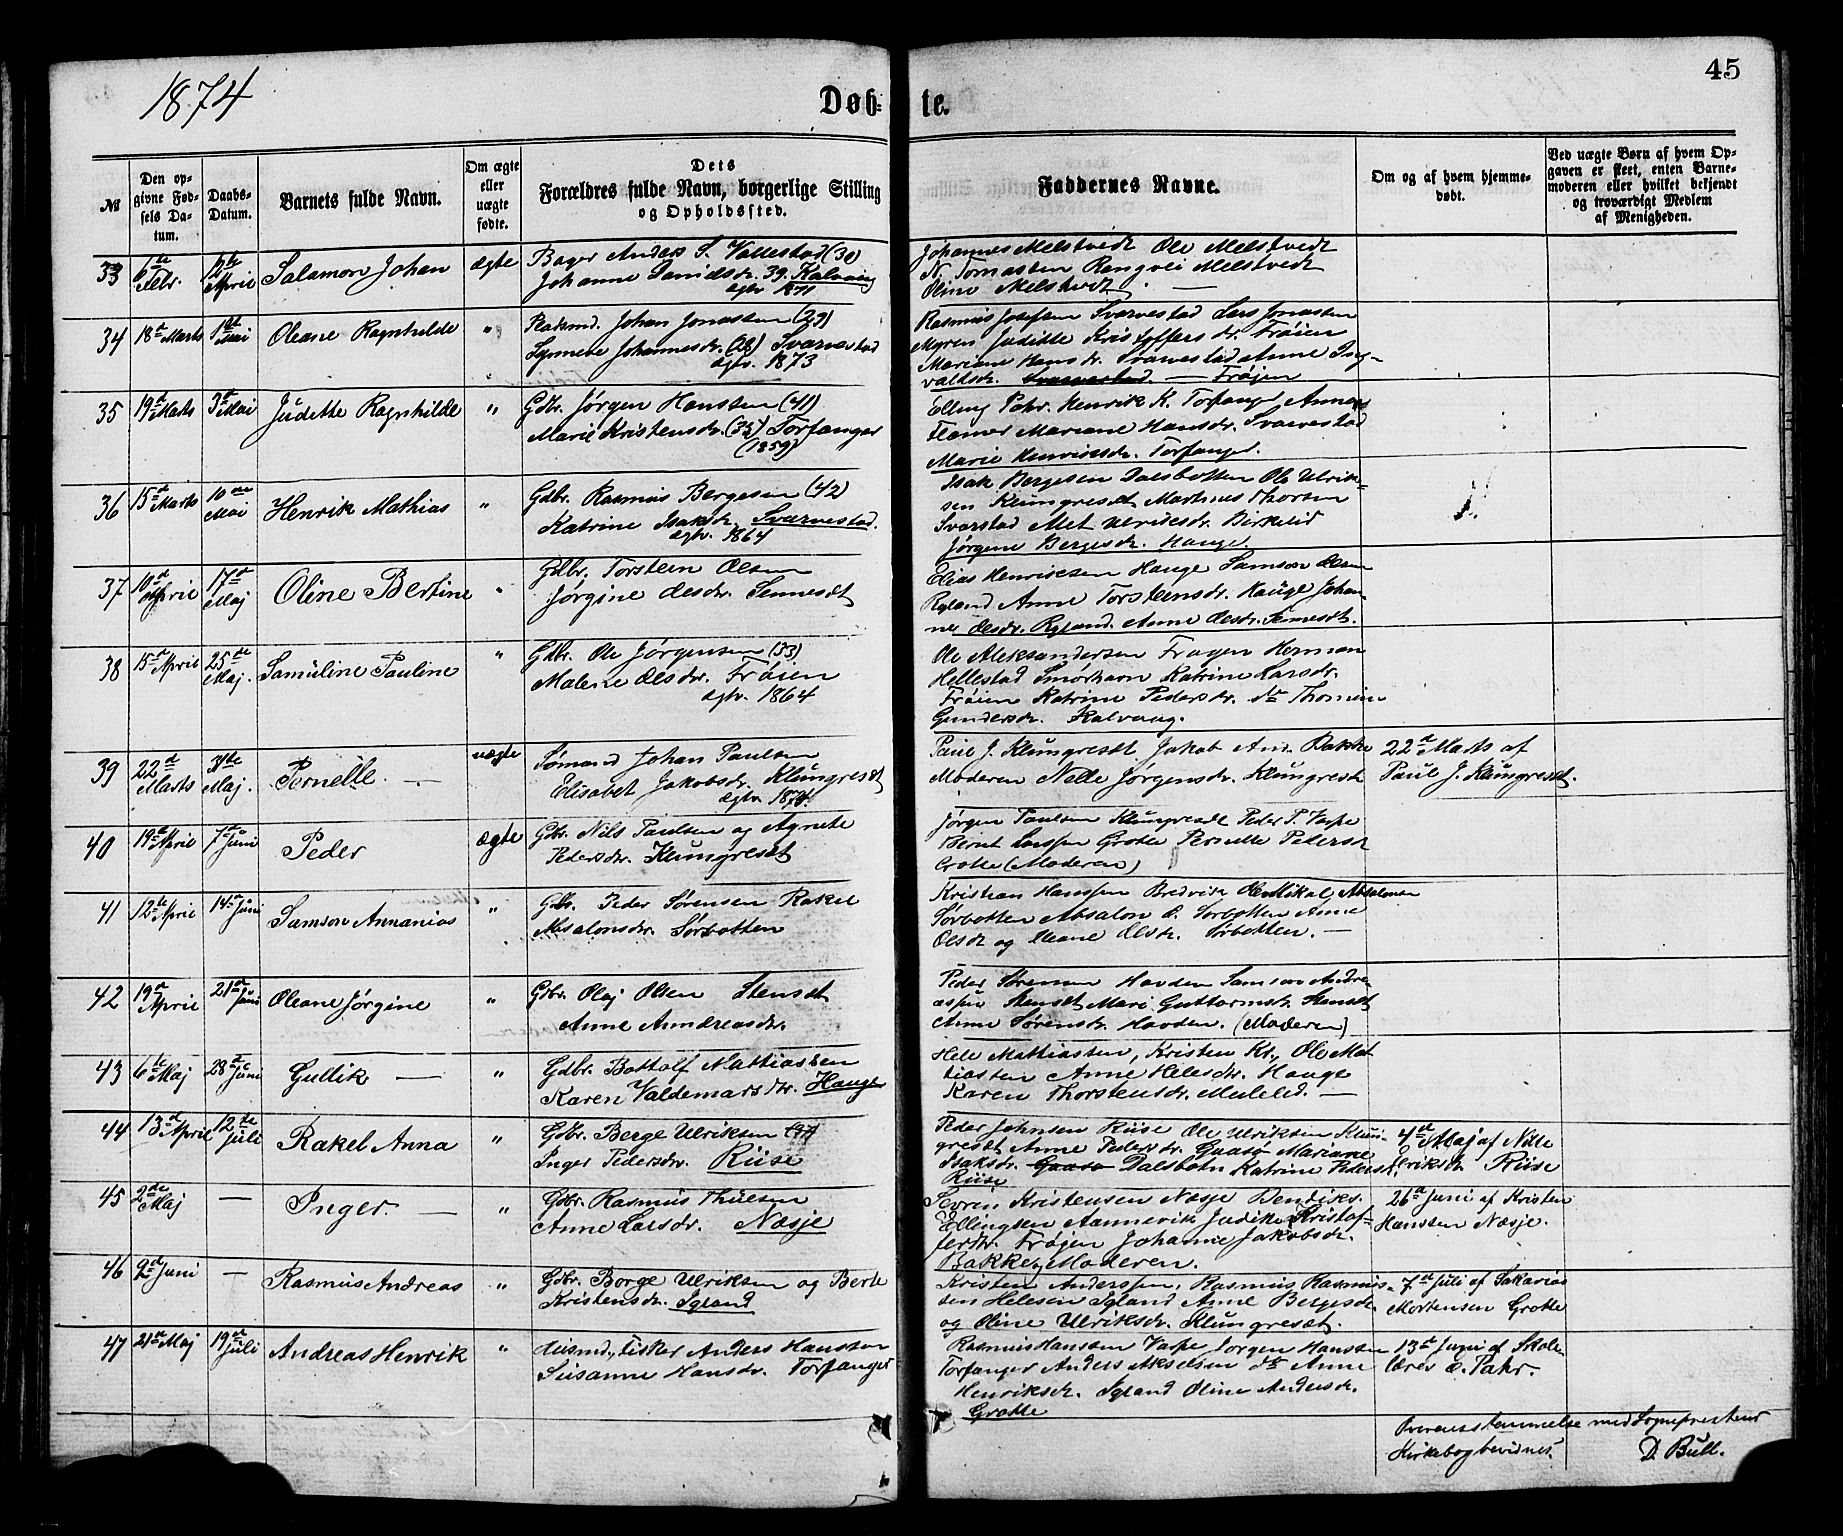 1874
Døb-
te.
45
№
Den op-
givne Fød-
sels Da-
tum.
Daabs-
Datum.
Barnets fulde Navn.
Om ægte
eller
uægte
fødte.
Dets
Forældres fulde Navn, borgerlige Stilling
og Opholdssted.
Faddernes Navne.
Om og af hvem hjemme-
døbt.
Ved uægte Børn af hvem Op-
gaven er skeet, enten Barne-
moderen eller hvilket bekjendt
og troværdigt Medlem
af Menigheden.
33 6te Febr. 12te April Salamon Johan ægte
Bager Anders S. Vallestad (30)
Johanne Danielsdr. 39. Kalvaag
ægtv. 1871
Johannes Melstvedt Ole Melstvedt
N. Tomassen Rangvei Melstvedt
Oline Melstvedt
34 18de Marts 1ste Mai Oleane Ragnhilde "
Pladsmd. Johan Jonassen (29)
Synneve Johannesdr. (28) Svarvestad
ægtv. 1873
Rasmus Josefsen Svarvestad Lars Jonassen
Myren Juditte Kristoffersdr. Frøien
Mariane Hansdr. Svarvestad Anne Ing-
valdsdr. Svarvestad. — Frøjen
35 19de Marts 3de Mai Judette Ragnhilde "
Gdbr. Jørgen Hansen (41)
Marie Kristensdr. (35) Torfanger
(1859)
Elling Pahr. Henrik K. Torfanger, Annan
Flamer Mariane Hansdr. Svarvestad
Marie Henriksdr. Torfanger.
36 15de Marts 10de Mai Henrik Mathias "
Gdbr. Rasmus Bergesen (42)
Katrine Isaksdr. Svarvestad.
ægtv. 1864
Isak Bergesen Dalsbotten Ole Ulrik-
sen Klungresæt Martinus Thorsen
Svarstad Met Ulriksdr. Birkelid
Jørgine Bergesdr. Hauge
37 10de April 17de Maj Oline Bertine "
Gdbr. Torsteen Olsen
Jørgine Olesdr. Sennesæt
Elias Henriksen Hauge Samson Olsen
Ryland Anne Torsteensdr. Hauge Johan-
ne Olesdr. Ryland. Anne Olesdr. Sennesæt.
38 15de April 25de Maj. Samuline Pauline "
Gdbr. Ole Jørgensen (33)
Malene Olesdr. Frøien
ægtv. 1864
Ole Aleksandersen Frøgen Herman
Hellestad Smørhavn Katrine Larsdr.
Frøien Katrine Pedersdr. do Thomine
Gundersdr. Kalvaag.
39 22de Marts 31te Maj. Pernelle. — uægte
Sømand Johan Paulsen
Elisabet Jakobsdr. Klungresæt
ægtv. 1874.
Paul J. Klungresæt Jakob And. Bakke
Moderen Nelle Jørgensdr. Klungresæt
22de Marts af
Paul J. Klungresæt.
40 19de April 7de Juni Peder ægte
Gdbr. Nils Paulsen og Agnete
Pedersdr. Klungresæt
Jørgen Paulsen Klungresæt Peder P. Vaspe
Bernt Larssen Grotle Pernelle Pedersdr
Grotle (Moderen)
41 12te April 14de Juni Samson Annanias "
Gdbr. Peder Sørensen Rakel
Absalonsdr. Sørbotten
Kristian Hanssen Bredvik Ole Mikal Absalonsen
Sørbotten Absalon O. Sørbotten Anne
Olsdr og Oleane Olsdr. Sørbotten. —
42 19de April 21de Juni Oleane Jørgine "
Gdbr. Olaj Olsen Stensæt
Anne Anndreasdr.
Peder Sørensen Hovden Samson Andre-
assen Stensæt Mari Guttormsdr Stensæt
Anne Sørensdr. Hovden. (Moderen)
43 6te Maj 28de Juni Gullik — "
Gdbr. Bottolf Mattiassen
Karen Valdemarsdtr. Hauge
Hele Mattiassen, Kristen Kr., Ole Mat-
tiassen Anne Helesdr. Hauge
Karen Thorstensdr. Mulelid. —
44 13de April 12te Juli Rakel Anna "
Gdbr. Berge Ulriksen (47)
Inger Pedersdr. Riise
Peder Johnsen Riise Ole Ulriksen Klun-
gresæt Anne Pedersdr. Gaasø Mariane
Isaksdr. Gaasø Dalsbotn Katrine Pedersdr.
Riise
4de Maj af Nille
Ulriksdr Riise
45 2den Maj — Inger. — "
Gdbr. Rasmus Thuesen
Anne Larsdr. Næsje
Severin Kristensen Næsje Bendiks
Ellingsen Aannevik Judike Kristof-
fersdtr. Frøjen Johanne Jakobsdr.
Bakke, Moderen.
26de Juni af Kristen
Hanssen Næsje.
46 2den Juni — Rasmus Andreas "
Gdbr. Børge Ulriksen og Berte
Kristensdr. Igland
Kristen Anderssen, Rasmus Rasmus-
sen Helesen Igland Anne Bergesdr
og Oline Ulriksdr. Klungresæt.
7de Juli af Sakarias
Mortensen Grotle
47 21de Maj 19de Juli Andreas Henrik "
Husmd., Fisker Anders Hanssen
Susanne Hansdr. Torfanger
Rasmus Hanssen Vaspe Jørgen Hanssen
Torfanger Anders Akselsen do Anne
Henriksdr. Igland Oline Andersdr.
Grotle
13de Juni af Skole-
lærer E. Pahr.
Overensstemmelse med Sogneprestens
Kirkebog bevidnes.
D. Bull.